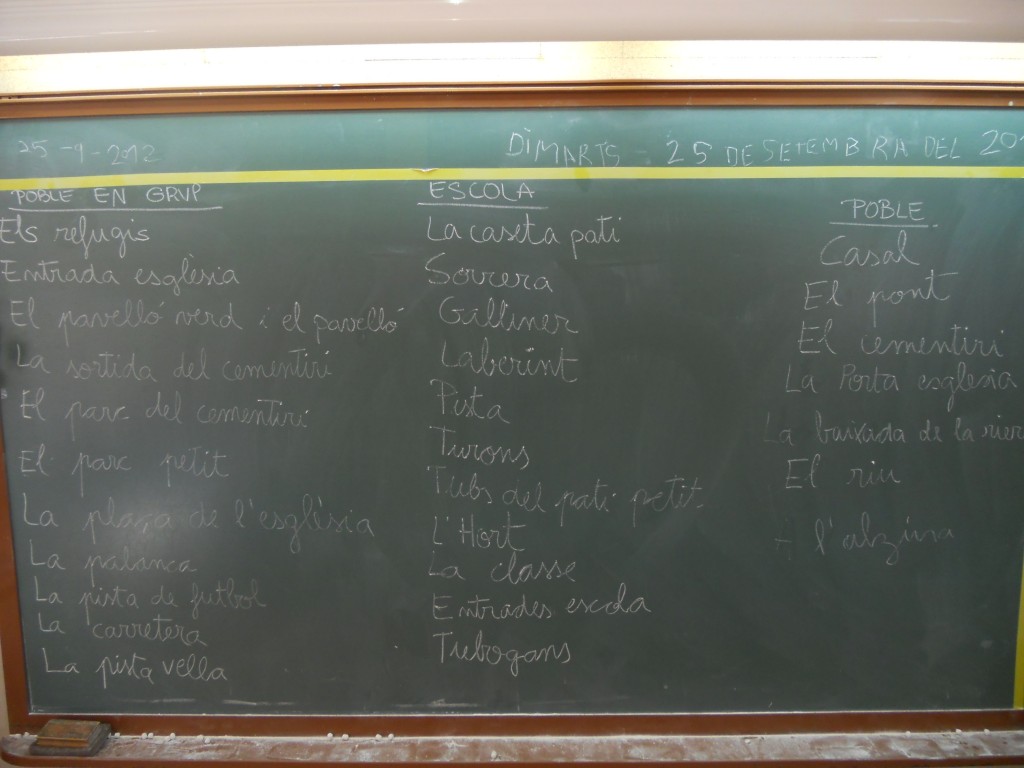 25-9-2012
DIMARTS - 25 DE SETEMBRA DEL 20
POBLE EN GRUP
Els refugis
Entrada esglèsia
El pavelló verd i el pavelló
La sortida del cementiri
El parc del cementiri
El parc petit
La plaça de l'esglèsia
La palanca
La pista de futbol
La carretera
La pista vella
ESCOLA
La caseta pati
Sorrera
Galliner
Laberint
Pista
Turons
Tubs del pati petit
L'Hort
La classe
Entrades escola
Tubogans
POBLE
Casal
El pont
El cementiri
La Porta esglesia
La baixada de la rier
El riu
A l'alzina